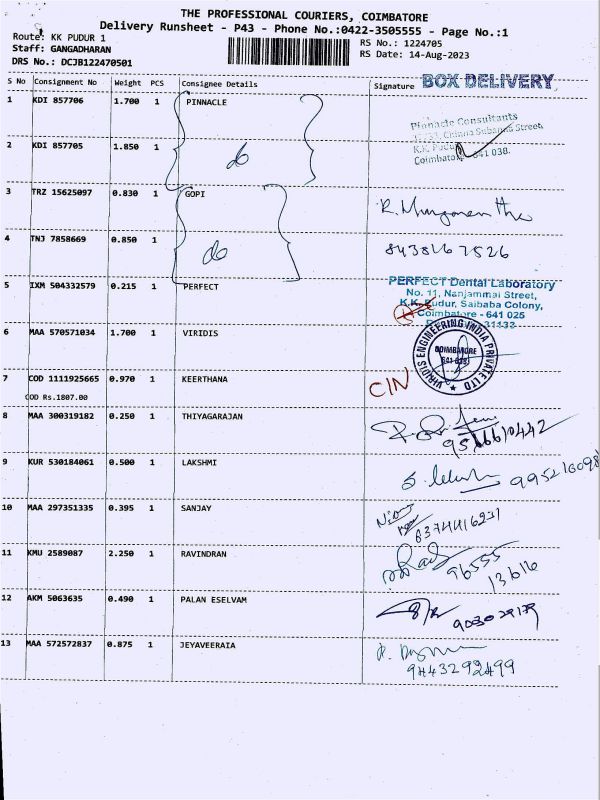 THE PROFESSIONAL COURIERS, COIMBATORE
Delivery Runsheet - P43 - Phone No.:0422-3505555 - Page No.:1
Route: KK PUDUR 1
Staff: GANGADHARAN
DRS No.: DCJB122470501
RS No.: 1224705
RS Date: 14-Aug-2023
S No Consignment No Weight PCS Consignee Details Signature BOX DELIVERY
1 KDI 857706 1.700 1 PINNACLE
Pinnacle Consultants
Chinna Subbanna Street,
K.K. Pudur
Coimbatore 641 038.
2 KDI 857705 1.850 1
do
3 TRZ 15625097 0.830 1 GOPI
4 TNJ 7858669 0.850 1
do
8438167526
5 IXM 504332579 0.215 1 PERFECT
PERFECT Dental Laboratory
No. 11, Nanjammai Street,
K.K. Pudur, Saibaba Colony,
Coimbatore - 641 025
6 MAA 570571034 1.700 1 VIRIDIS
VIRIDIS ENGINEERING INDIA PRIVATE LTD
COIMBATORE
7 COD 1111925665 0.970 1 KEERTHANA
COD Rs.1807.00
CIN
8 MAA 300319182 0.250 1 THIYAGARAJAN
9 KUR 530184061 0.500 1 LAKSHMI
10 MAA 297351335 0.395 1 SANJAY
11 KMU 2589087 2.250 1 RAVINDRAN
96555
13616
12 AKM 5063635 0.490 1 PALAN ESELVAM
13 MAA 572572837 0.875 1 JEYAVEERAIA
9443292499